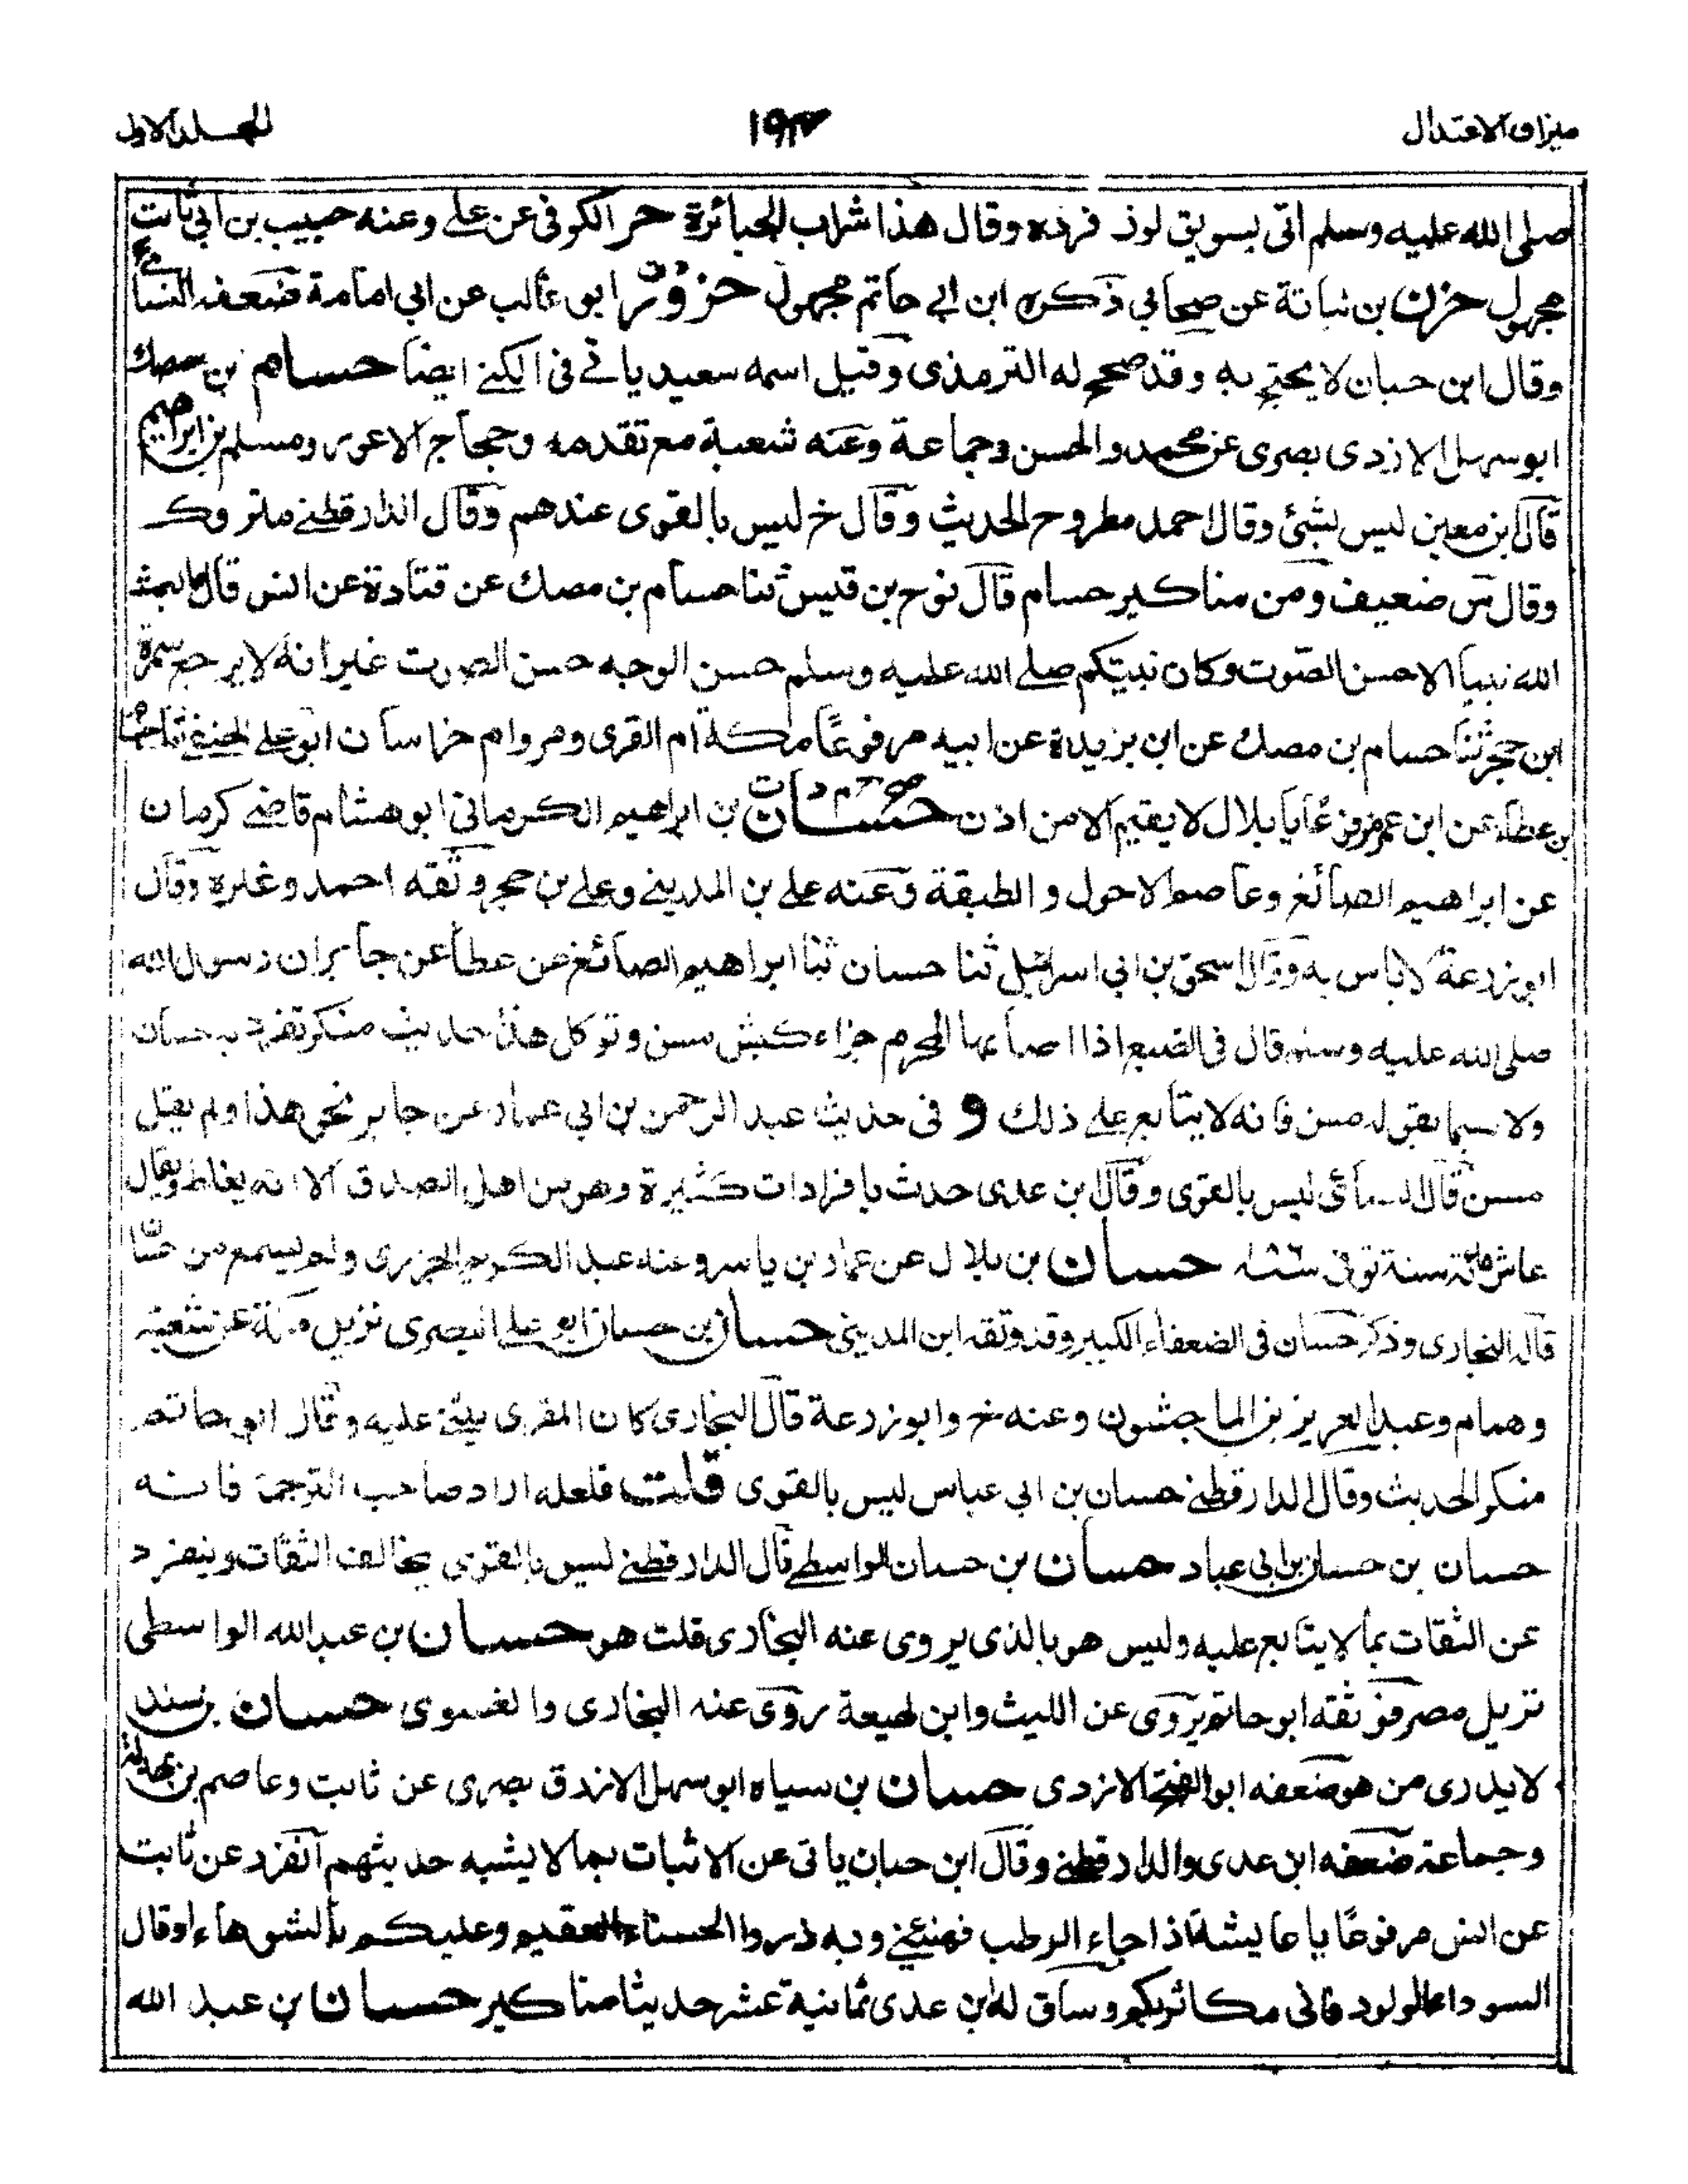 ميزان الاعتدال
المجلد الاول
صلى الله عليه وسلم اتى بسويق لوز فرده وقال هذا شراب الجبابرة حر الكوفى عن على وعنه حبيب بن ابي ثابت
مجهول حزن بن نباتة عن صحابي ذكره ابن ابي حاتم مجهول حزوّر ابو غالب عن ابي امامة ضعفه النسائي
وقال ابن حبان لا يحتج به وقد صحح له الترمذى وقيل اسمه سعيد ياتي فى الكنى ايضا حسام بن مصك
ابو سهل الازدى بصرى عن محمد والحسن وجماعة وعنه شعبة مع تقدمه وحجاج الاعور ومسلم بن ابراهيم
قال ابن معين ليس بشئ وقال احمد مطروح الحديث وقال خ ليس بالقوى عندهم وقال الدارقطني متروك
وقال س ضعيف ومن مناكير حسام قال نوح بن قيس ثنا حسام بن مصك عن قتادة عن انس قال ما بعث
الله نبيا الا حسن الصوت وكان نبيكم صلى الله عليه وسلم حسن الوجه حسن الصوت غير انه لا يرجع
ابن حجر ثنا حسام بن مصك عن ابن بريدة عن ابيه مرفوعا مكة ام القرى ومرو ام خراسان ابو على الحنفي ثنا حسام
عن عطاء عن ابن عمر مرفوعا يا بلال لا يقيم الا من اذن حسان بن ابراهيم الكرماني ابو هشام قاضي كرمان
عن ابراهيم الصائغ وعاصم الاحول والطبقة وعنه على بن المديني وعلى بن حجر وثقه احمد وغيره وقال
ابو زرعة لا باس به وقال اسحق بن ابي اسرائيل ثنا حسان ثنا ابراهيم الصائغ عن عطا عن جابر ان رسول الله
صلى الله عليه وسلم قال فى الضبع اذا اصابها المحرم جزاء كبش مسن وتوكل هذا حديث منكر تفرد به حسان
ولا سيما بقوله مسن فانه لا يتابع على ذلك و فى حديث عبد الرحمن بن ابي عمار عن جابر نحو هذا ولم يقل
مسن قال النسائى ليس بالقوى وقال ابن عدى حدث بافرادات كثيرة وهو من اهل الصدق الا انه يغلط ويقال
عاش مائة سنة توفى حسان بن بلال عن عمار بن ياسر وعنه عبد الكريم الجزرى ولم يسمع من حسان
قاله البخارى وذكر حسان فى الضعفاء الكبير وقد وثقه ابن المدينى حسان بن حسان ابو على البصرى نزيل مكة عن شعبة
وهمام وعبد العزيز بن الماجشون وعنه خ وابو زرعة قال البخارى كان المقرى يثنى عليه وقال ابو حاتم
منكر الحديث وقال الدارقطني حسان بن ابي عباس ليس بالقوى قلت فلعله اراد صاحب الترجمة فانه
حسان بن حسان بن ابى عباد حسان بن حسان الواسطى قال الدارقطنى ليس بالقوى يخالف الثقات وينفرد
عن الثقات بما لا يتابع عليه وليس هو بالذى يروى عنه البخارى قلت هو حسان بن عبد الله الواسطى
نزيل مصر فوثقه ابو حاتم يروى عن الليث وابن لهيعة روى عنه البخارى والفسوى حسان بن سند
لا يدرى من هو ضعفه ابو الفتح الازدى حسان بن سياه ابو سهل الازدق بصرى عن ثابت وعاصم بن بهدلة
وجماعة ضعفه ابن عدى والدارقطنى وقال ابن حبان ياتى عن الاثبات بما لا يشبه حديثهم انفرد عن ثابت
عن انس مرفوعا يا عايشة اذا جاء الرطب فهنئيني وبه ذروا الحسناء العقيم وعليكم بالشوهاء او قال
السوداء الولود فانى مكاثر بكم وساق له ابن عدى ثمانية عشر حديثا مناكير حسان بن عبد الله